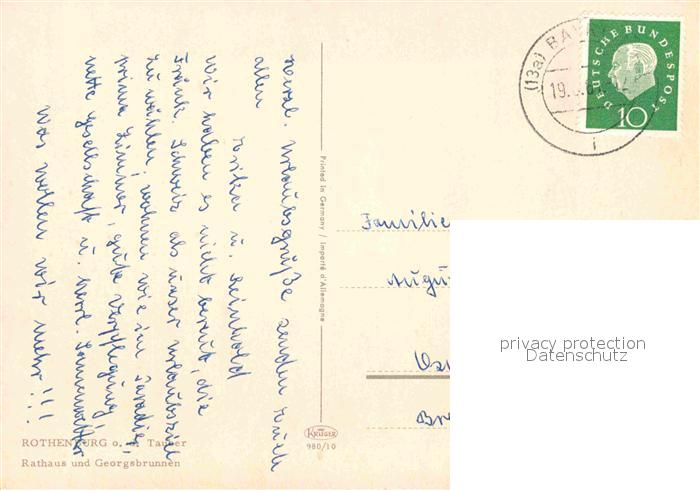 Herzl. Urlaubsgrüße senden Euch
allen
Erika u. Reinhold
Wir haben es nicht bereut, die
Fränk. Schweiz als unser Urlaubsziel
zu wählen; wohnen wie im Paradies,
prima Zimmer, gute Verpflegung,
nette Gesellschaft u. herrl. Sonnenwetter
was wollen wir mehr!!!
ROTHENBURG o. d. Tauber
Rathaus und Georgsbrunnen
Printed in Germany / Importé d'Allemagne
KRÜGER
980/10
(13a) BA
19.
i
DEUTSCHE BUNDESPOST
10
Familie
Augu
privacy protection
Datenschutz